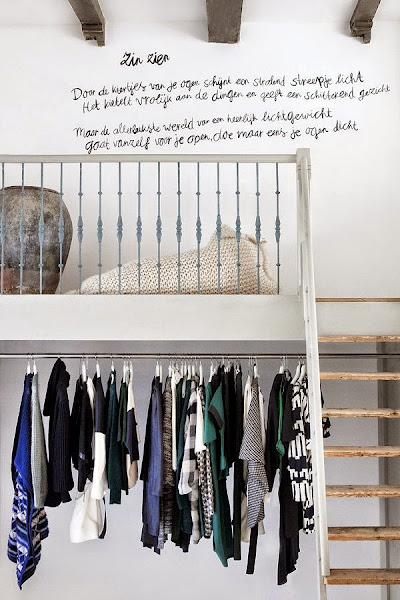 Zin zien
Door de kiertjes van je ogen schijnt een stralend streepje licht
Het kietelt vrolijk aan de dingen en geeft een schitterend gezicht
Maar de allerleukste wereld van een heerlijk lichtgewicht
gaat vanzelf voor je open, doe maar eens je ogen dicht